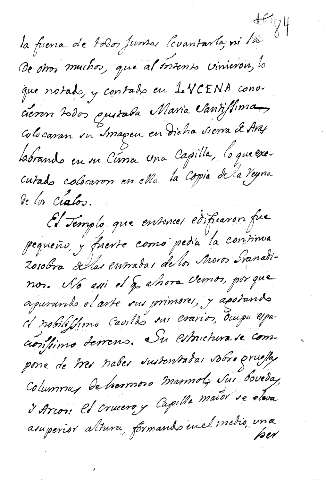 84
la fuerza de todos juntos levantarla, ni la
de otros muchos, que al intento vinieron, lo
que notado, y contado en LUCENA cono-
cieron todos gustaba Maria Santissima
colocaran su Imagen en dicha sierra de Aras
labrando en su Cima una Capilla, lo que exe-
cutado colocaron en ella la Copia de la Reyna
de los Cielos.
El Templo que entonces edificaron fue
pequeño, y fuerte como pedia la continua
zosobra de las entradas de los Moros Granadi-
nos. No asi el q ahora vemos, porque
apurando el arte sus primores, y apotando
el nobilissimo Cavildo sus erarios, ocupa espa-
ciosissimo terreno. Su estructura se com-
pone de tres nabes sustentadas sobre gruesas
columnas de hermoso marmol, sus bovedas,
y Arcos. El crucero y Capilla maior se eleva
a superior altura, formando en el medio, una